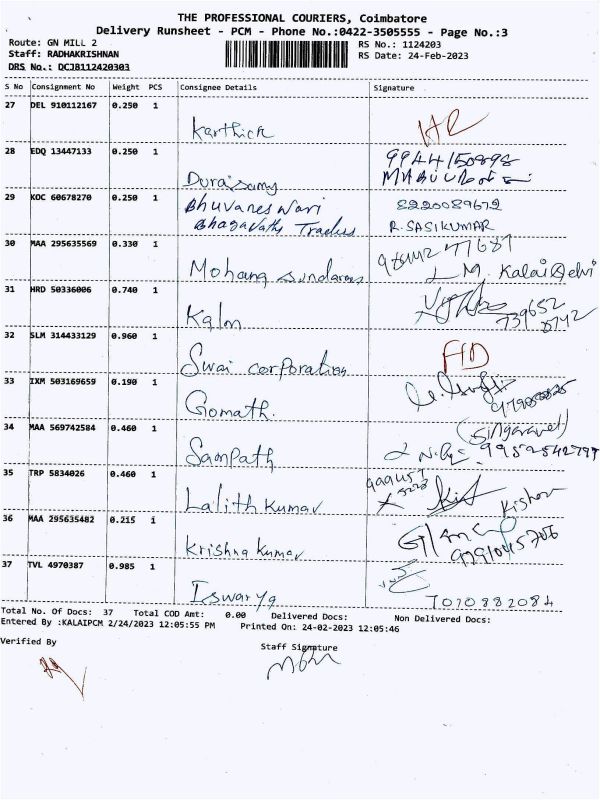 THE PROFESSIONAL COURIERS, Coimbatore
Delivery Runsheet - PCM - Phone No.:0422-3505555 - Page No.:3
Route: GN MILL 2
RS No.: 1124203
Staff: RADHAKRISHNAN
RS Date: 24-Feb-2023
DRS No.: DCJB112420303
S No Consignment No Weight PCS Consignee Details Signature
27 DEL 910112167 0.250 1
Karthick
28 EDQ 13447133 0.250 1
Duraisamy
29 KOC 60678270 0.250 1 Bhuvaneswari 8220089672
Bhagavathi Traders R. SASIKUMAR
30 MAA 295635569 0.330 1
Mohana sundaram M. Kalaiselvi
31 HRD 50336006 0.740 1
Kalon 739652
0742
32 SLM 314433129 0.960 1
Swai corporation
33 IXM 503169659 0.190 1
Gomath.
34 MAA 569742584 0.460 1 (Singaravel)
Sampath 9952542797
35 TRP 5834026 0.460 1
Lalith Kumar Kishor
36 MAA 295635482 0.215 1
Krishna Kumar 9291045706
37 TVL 4970387 0.985 1
Iswarya 7010882084
Total No. Of Docs: 37 Total COD Amt: 0.00 Delivered Docs: Non Delivered Docs:
Entered By :KALAIPCM 2/24/2023 12:05:55 PM Printed On: 24-02-2023 12:05:46
Verified By Staff Signature